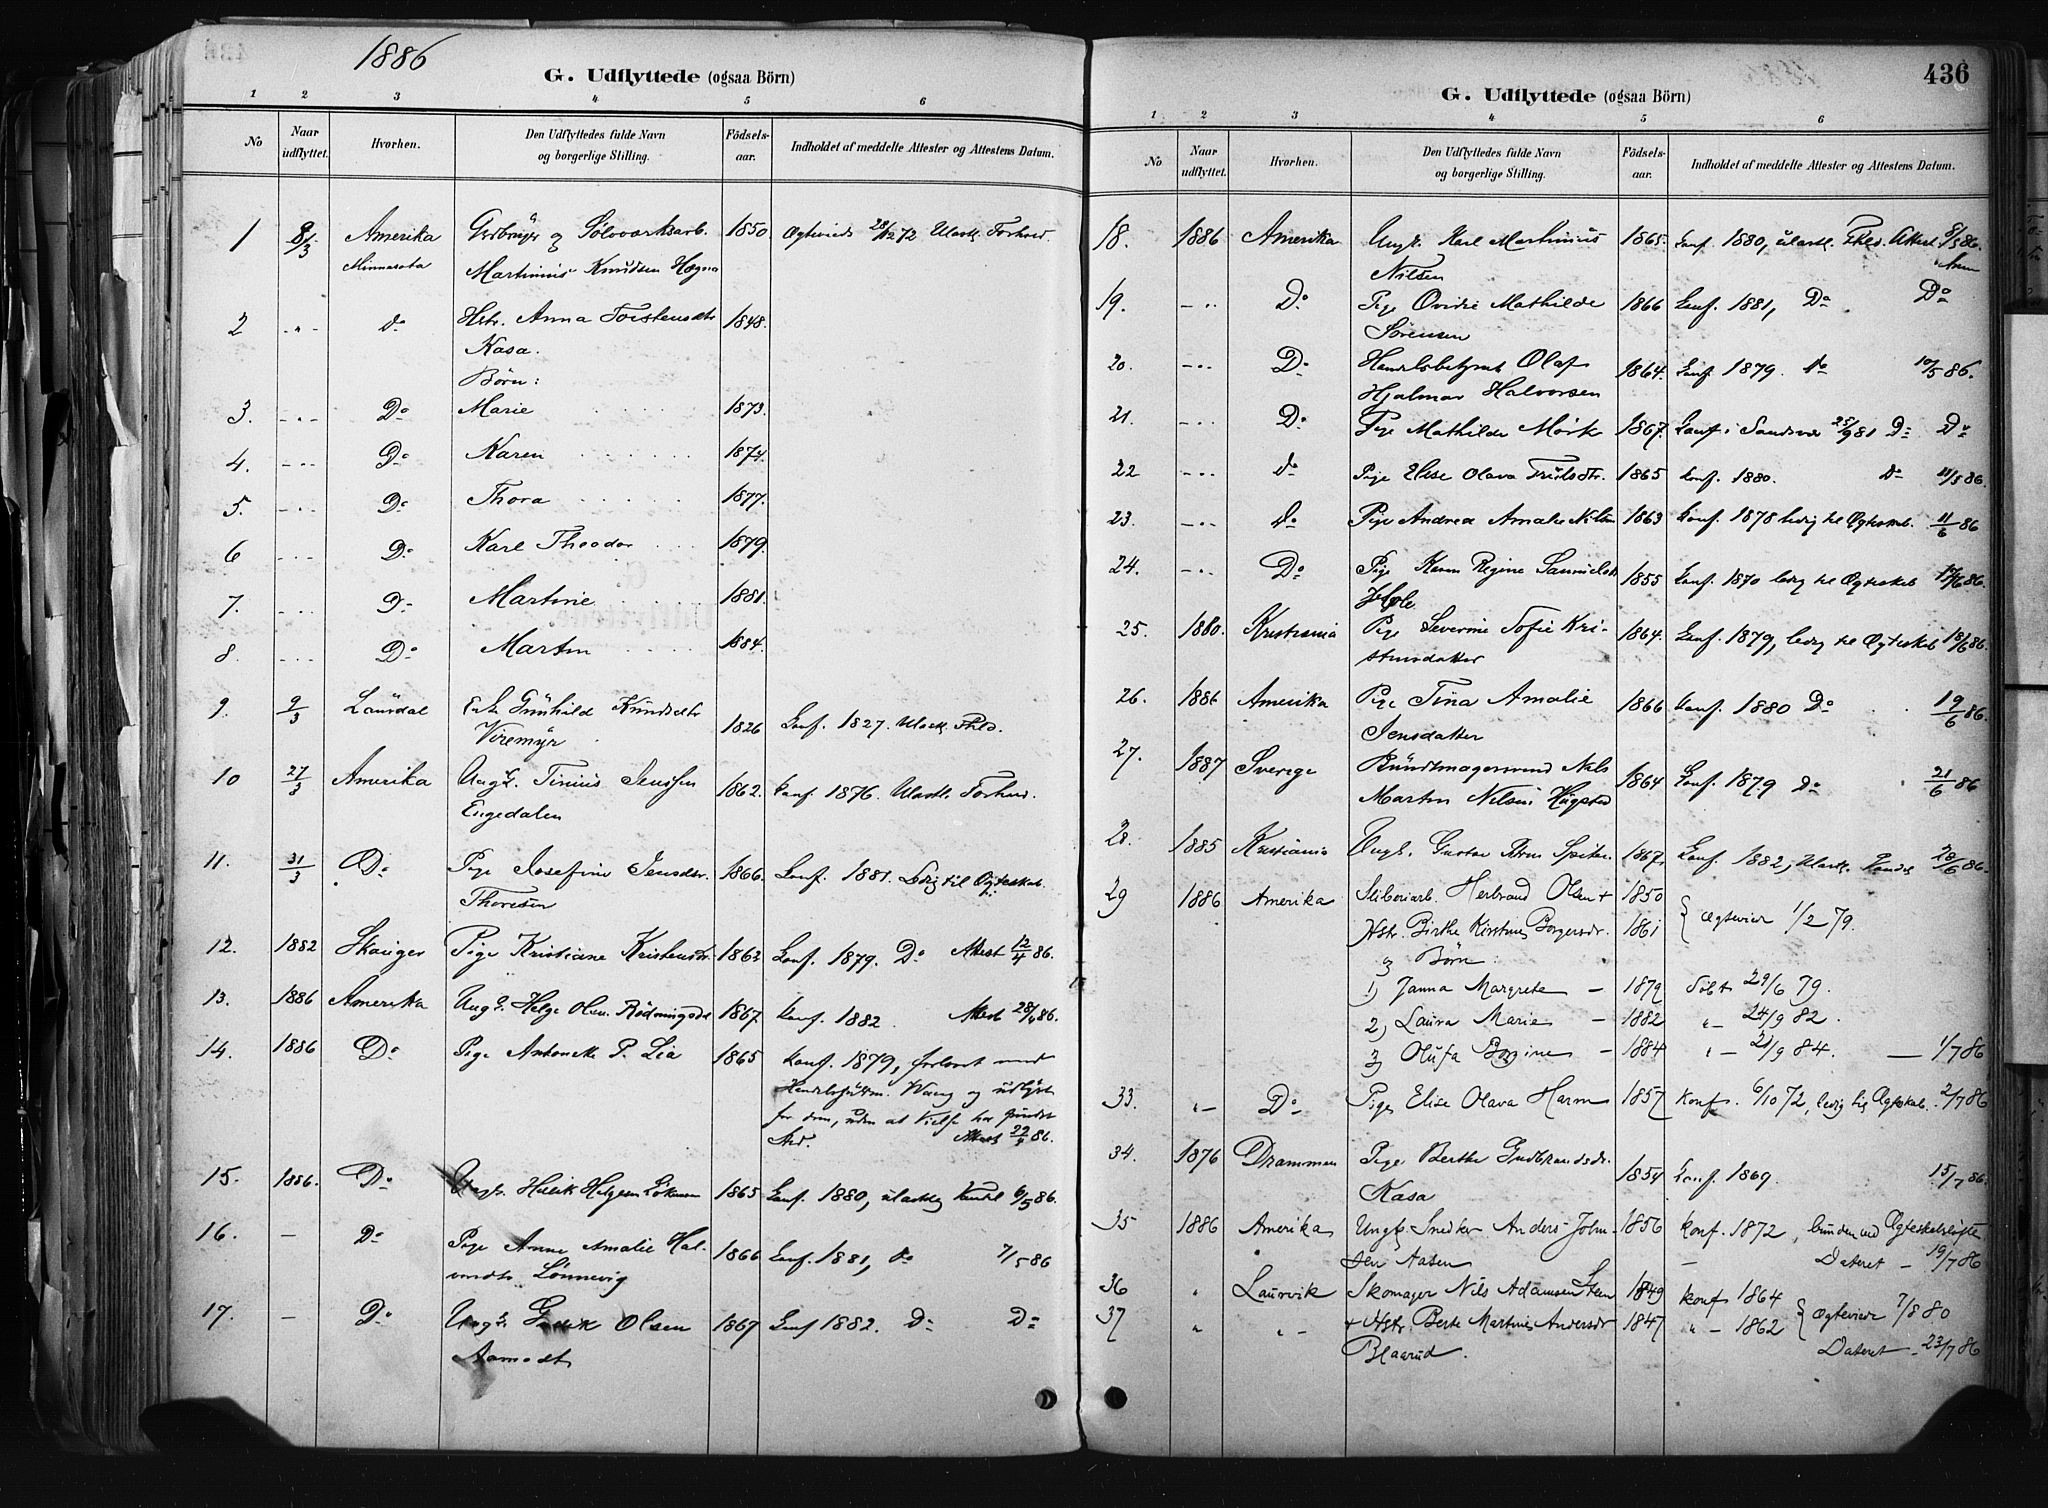 1886
G. Udflyttede (ogsaa Börn)
1 2 3 4 5 6
No Naar udflyttet. Hvorhen. Den Udflyttedes fulde Navn og borgerlige Stilling. Födsels-aar. Indholdet af meddelte Attester og Attestens Datum.
1 8/3 Amerika Grdbruger og Sölvværksarb. 1850 Ægteviede 28/12 72 Ulastl. Forhold.
Minnesota Martinius Knudsen Hægna
2 " - Do Hstr. Anna Torstensdtr 1848.
Kasa.
Börn:
3. - " - Do Marie 1873.
4. - " - Do Karen 1874.
5. - " - Do Thora 1877.
6 - " - Do Karl Theodor 1879.
7. - " - Do Martine 1881.
8. - " - Do Martin 1884.
9. 9/3 Laurdal Enke Gunhild Knudsdtr 1826 Konf. 1827. Ulastl. Fhld.
Viremyr
10 27/3 Amerika Ungk. Tinius Jenssen 1862. Konf. 1876. Ulastl. Forhold.
Engedalen
11. 31/3 Do Pige Josefine Jensdtr. 1866. Konf. 1881. Ledig til Ægteskab.
Thoresen
12. 1882 Skauger Pige Kristiane Kristensdtr. 1862 Konf. 1879. Do Attest 12/4 86.
13. 1886 Amerika Ungk. Helge Olsen Rödningsdal 1867. Konf. 1882. Attest 28/4 86.
14. 1886 Do Pige Antonette P. Lia 1865 Konf. 1879, forlovet med
Wang og udlyst
for dem, uden at Vielse har fundet
Sted. Attest 29/4 86.
15. 1886. Do Ungk. Helgesen 1865 Konf. 1880, ulastlig Vandel 6/5 86.
16. - Do Pige Anne Amalie Hal- 1866 Konf. 1881, Do 7/5 86
vorsdtr. Lönnevig
17. - Do Ungk. Olsen 1867 Konf 1882. Do Do
Aamodt
436
G. Udflyttede (ogsaa Börn)
1 2 3 4 5 6
No Naar udflyttet. Hvorhen. Den Udflyttedes fulde Navn og borgerlige Stilling. Födsels-aar. Indholdet af meddelte Attester og Attestens Datum.
18. 1886 Amerika Ungk. Karl Martinius 1865. Konf. 1880, ulastl. Fhld. Attest 8/5 86.
Nilsen
19. - " - Do Pige Ovidie Mathilde 1866 Konf. 1881, Do Do
Sörensen
20. - " - Do Handelsbetjent Olaf 1864. Konf. 1879. Do 10/5 86.
Hjalmar Halvorsen
21. - " - Do Pige Mathilde Mörk 1867. Konf. i Sandsvær 25/9 81 Do Do
22 - " - Do Pige Else Olava 1865 Konf. 1880. Do 11/5 86.
23. - " - Do Pige Andrea Amalie Nilsen 1863 Konf. 1878 ledig til Ægteskab. 11/6 86
24. - " - Do Pige Karen Regine Samuelsdtr 1855 Konf. 1870 ledig til Ægteskab 17/6 86.
25. 1880. Kristiania Pige Severine Sofie Kri- 1864. Konf. 1879, ledig til Ægteskab 18/6 86.
stensdatter
26. 1886 Amerika Pige Tina Amalie 1866 Konf. 1880 Do 19/6 86.
Jensdatter
27. 1887 Sverige Bundtmagersvend Nils 1864 Konf. 1879 Do 21/6 86
Martin Nilsen Hugsted
28. 1885 Kristiania Ungk. Gustav 1867. Konf. 1882, Ulastl. Vandel 28/6 86.
29 1886 Amerika Sliberiarb. Herbrand Olsen + 1850 } Ægteviede 1/2 79.
Hstr. Birthe Kirstine Borgersdr. 1861
3 Börn:
1) Janna Margrete - 1879 Döbt 29/6 79.
2) Laura Marie - 1882 " - 24/9 82.
3) Olufa Borgine - 1884 " - 21/9 84. - 1/7 86
33. " - Do Pige Elise Olava Harm 1857 Konf. 6/10 72, ledig til Ægteskab. 2/7 86
34. 1876 Drammen Pige Berthe Gudbrandsdr. 1854 Konf. 1869. 15/7 86.
Kasa
35 1886 Amerika Ungk. Snedker Anders John- 1856 Konf. 1872, bunden ved Ægteskabslöfte
sen Aasen - Dateret - 19/7 86
36 " Laurvik Skomager Nils Adamsen Steen 1849 Konf 1864 } Ægteviede 7/8 80
37 " " - + Hstr Berte Martine Andersdr 1847 " - 1862
Blaarud. Dateret - 23/7 86